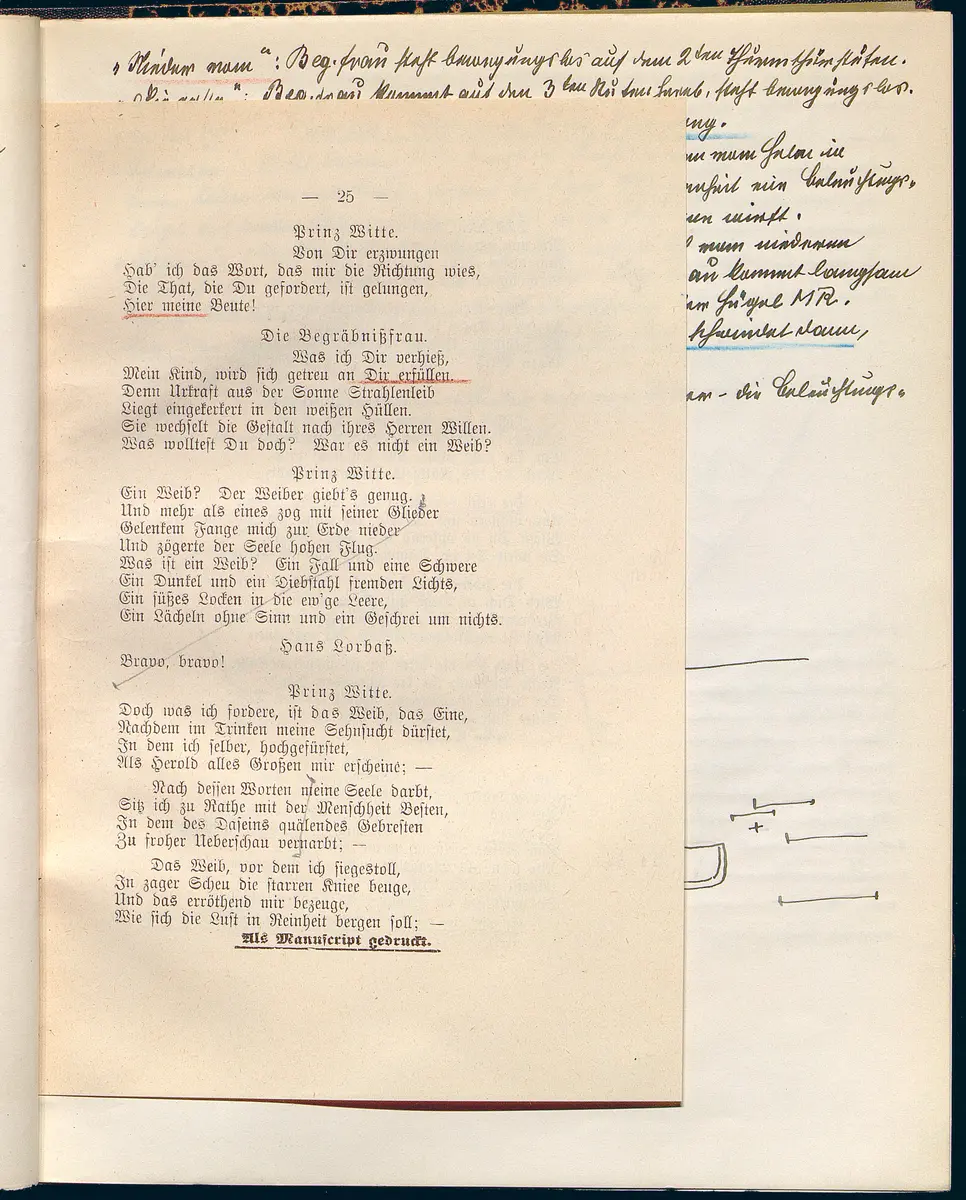 „Nieder vom“: Beg.frau steht bewegungslos auf dem 2ten Thurmthürstufen.
Beg.frau kommt auf den 3ten Stufen herab, steht bewegungslos.
— 25 —
Prinz Witte.
Von Dir erzwungen
Hab' ich das Wort, das mir die Richtung wies,
Die That, die Du gefordert, ist gelungen,
Hier meine Beute!
Die Begräbnißfrau.
Was ich Dir verhieß,
Mein Kind, wird sich getreu an Dir erfüllen.
Denn Urkraft aus der Sonne Strahlenleib
Liegt eingekerkert in den weißen Hüllen.
Sie wechselt die Gestalt nach ihres Herren Willen.
Was wolltest Du doch? War es nicht ein Weib?
Prinz Witte.
Ein Weib? Der Weiber giebt's genug.
Und mehr als eines zog mit seiner Glieder
Gelenkem Fange mich zur Erde nieder
Und zögerte der Seele hohen Flug.
Was ist ein Weib? Ein Fall und eine Schwere
Ein Dunkel und ein Diebstahl fremden Lichts,
Ein süßes Locken in die ew'ge Leere,
Ein Lächeln ohne Sinn und ein Geschrei um nichts.
Hans Lorbaß.
Bravo, bravo!
Prinz Witte.
Doch was ich fordere, ist das Weib, das Eine,
Nachdem im Trinken meine Sehnsucht dürstet,
In dem ich selber, hochgefürstet,
Als Herold alles Großen mir erscheine; —
Nach dessen Worten meine Seele darbt,
Sitz ich zu Rathe mit der Menschheit Besten,
In dem des Daseins quälendes Gebresten
Zu froher Ueberschau vernarbt; —
Das Weib, vor dem ich siegestoll,
In zager Scheu die starren Kniee beuge,
Und das erröthend mir bezeuge,
Wie sich die Lust in Reinheit bergen soll; —
Als Manuscript gedruckt.
eine Beleuchtungs-
wirft.
vom niederen
kommt langsam
Hügel MR.
dann,
- die Beleuchtungs-